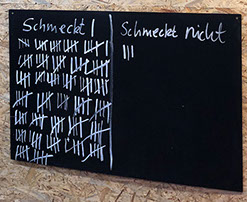 Schmeckt | Schmeckt nicht
|||